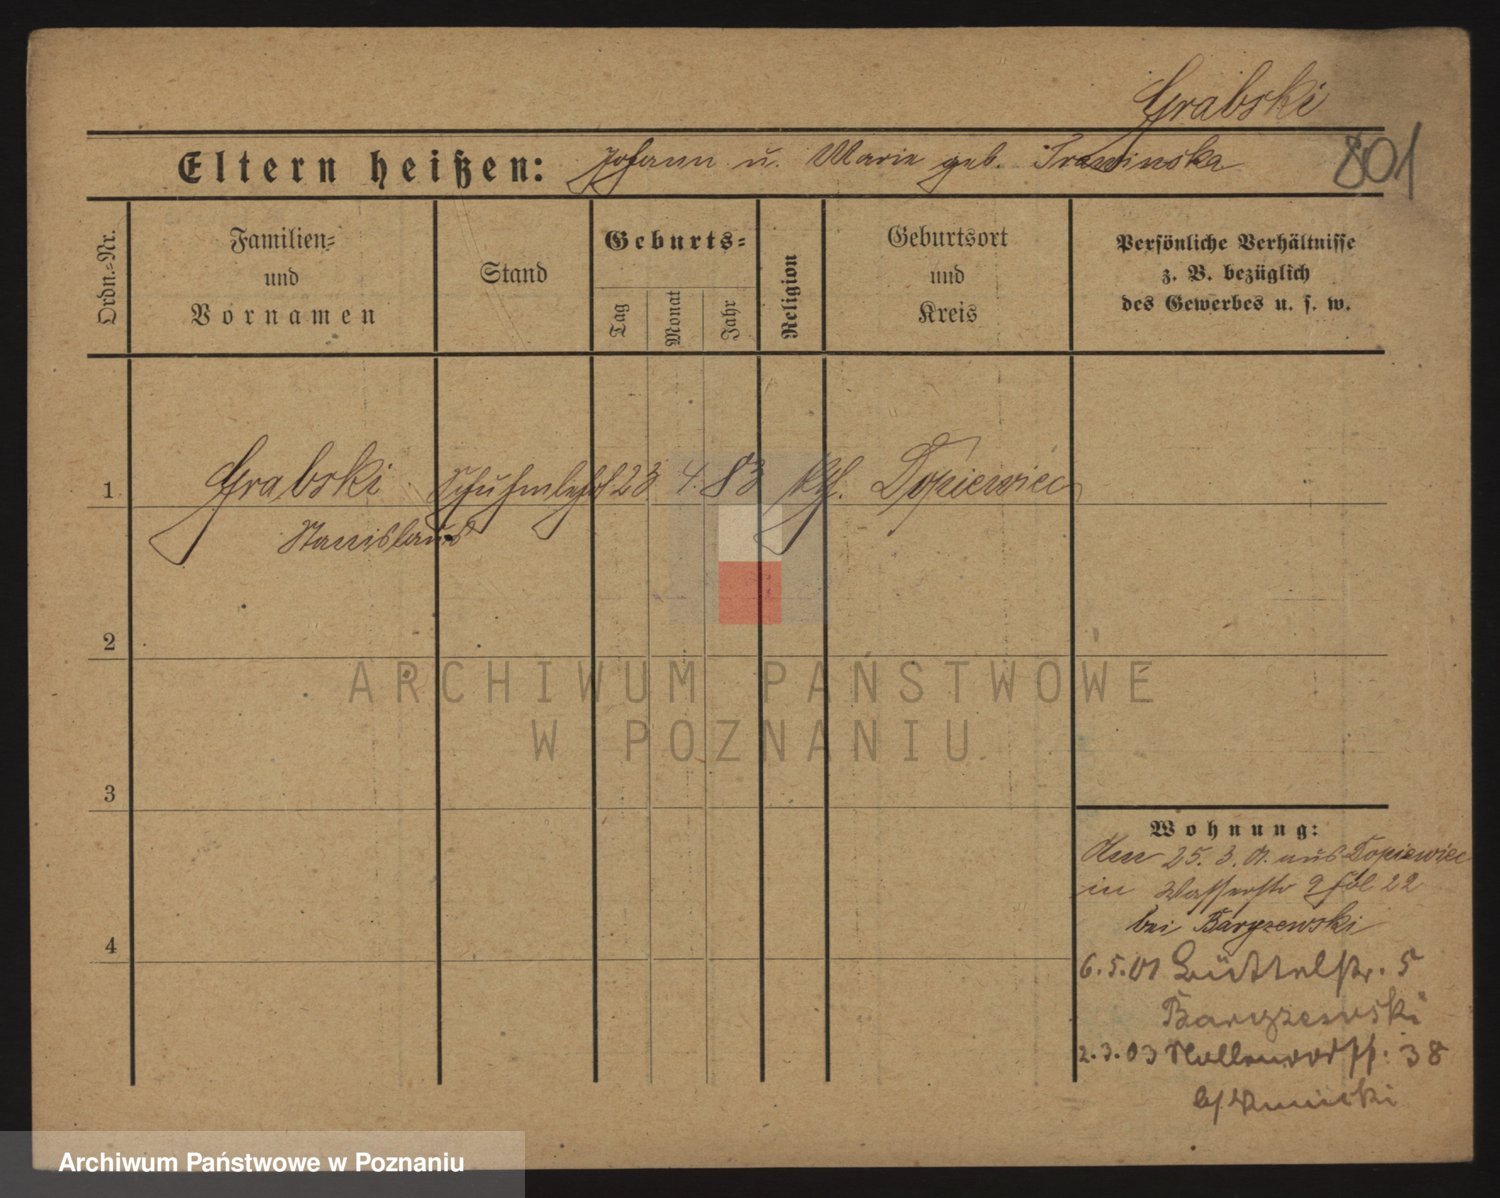 Grabski
Eltern heißen: Johann u. Marie geb. Trawinska
801
Ordn.-Nr.
Familien-
und
Vornamen
Stand
Geburts-
Tag
Monat
Jahr
Religion
Geburtsort
und
Kreis
Persönliche Verhältnisse
z. B. bezüglich
des Gewerbes u. s. w.
1 Grabski Schuhmlehrl 23 4. 83 kth. Dopiewiec
Stanislaus
2
3
4
ARCHIWUM PAŃSTWOWE
W POZNANIU
Wohnung:
Am 25. 3. 01. aus Dopiewiec
in Wasserstr 22
bei Baryzewski
6.5.01 Büttelstr. 5
Baryzewski
2.3.03 38
Archiwum Państwowe w Poznaniu